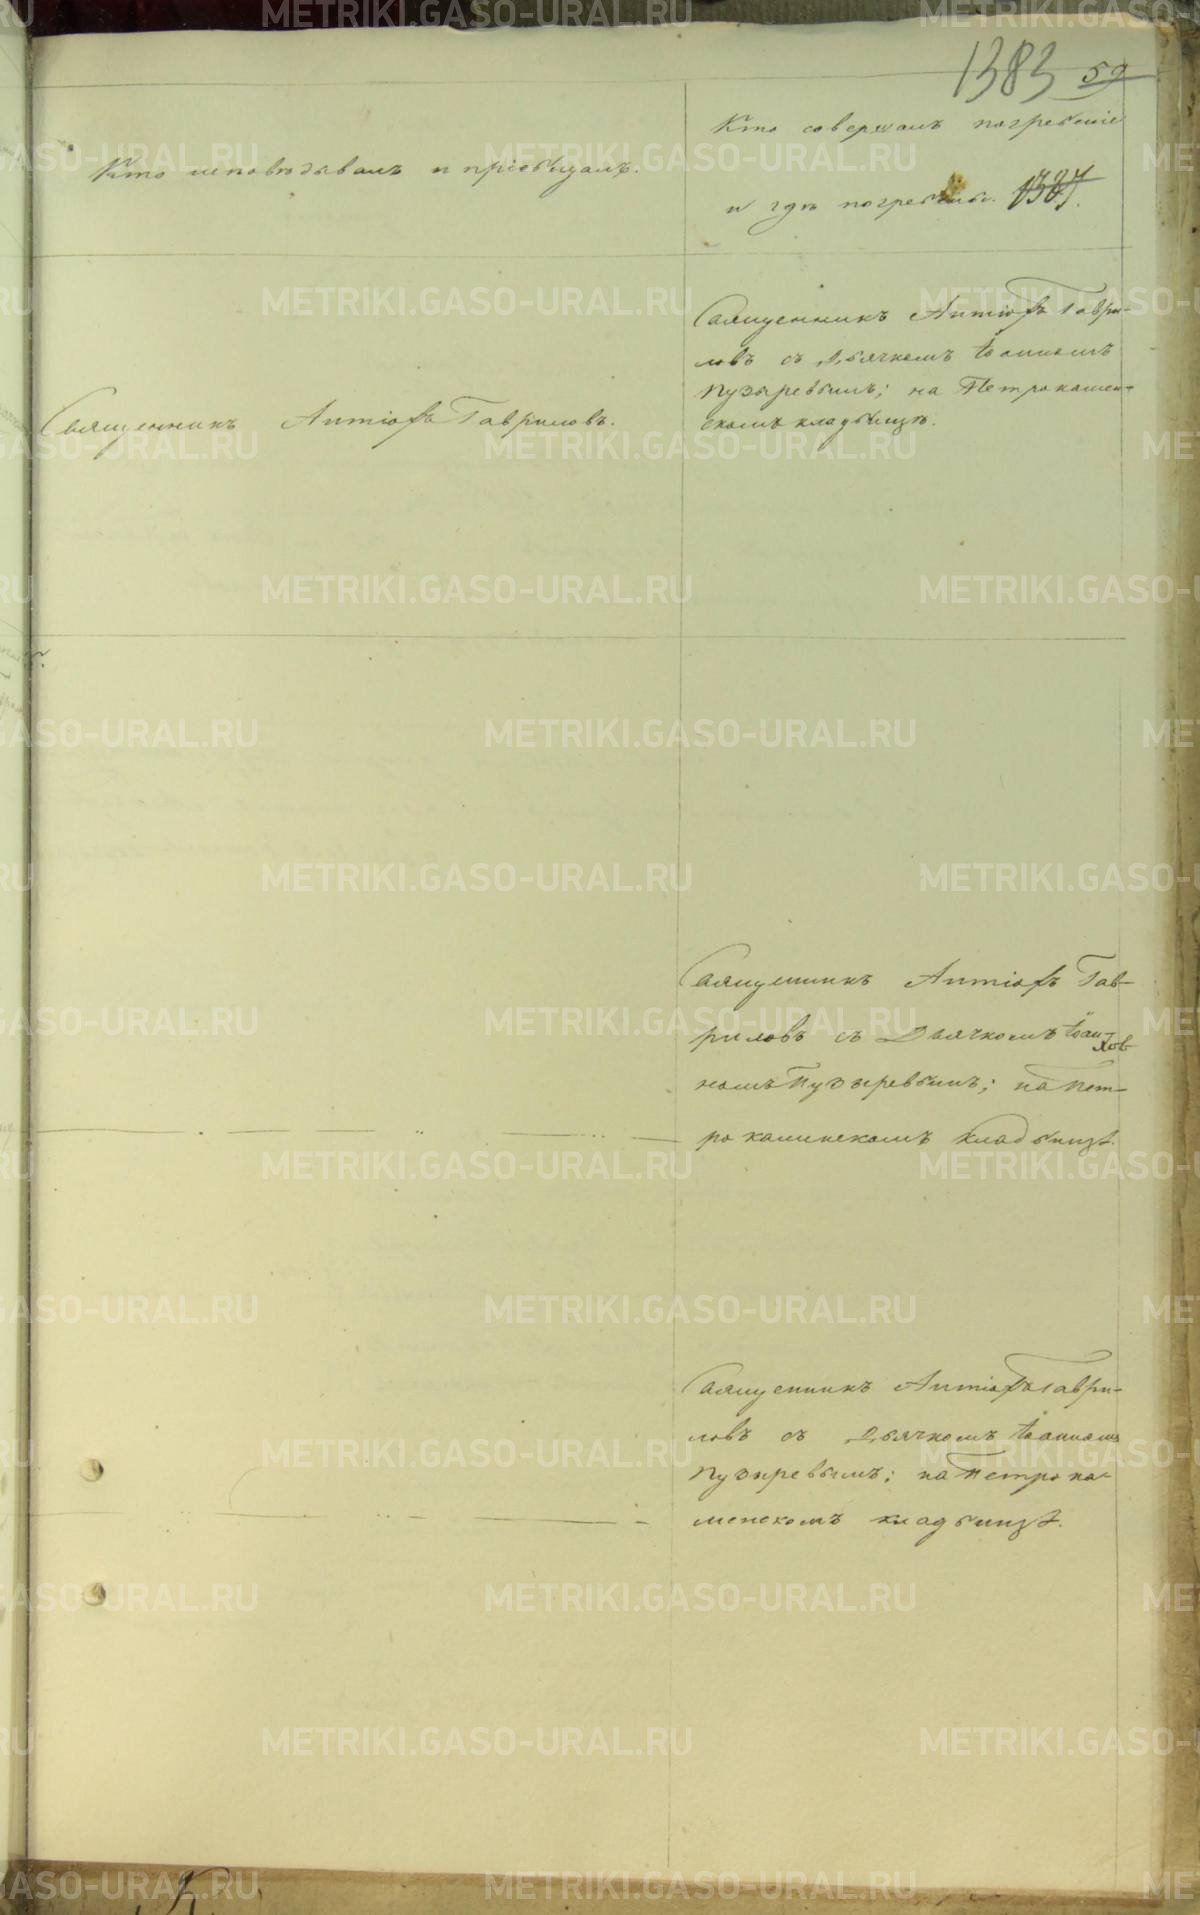 1383 59
Кто исповѣдывалъ и пріобщалъ.
Кто совершалъ погребеніе
и гдѣ погребены. 1387.
Священникъ Антіохъ Гавриловъ.
Священникъ Антіохъ Гаври-
ловъ съ Дьячкомъ Іоанномъ
Пузыревымъ; на Петрокамен-
скомъ кладбищѣ.
Священникъ Антіохъ Гав-
риловъ съ Дьячкомъ Іоан-
номъ Пузыревымъ; на Пет-
рокаминскомъ кладбищѣ.
Священникъ Антіохъ Гаври-
ловъ съ Дьячкомъ Іоанномъ
Пузыревымъ; на Петрока-
менскомъ кладбищѣ.
METRIKI.GASO-URAL.RU